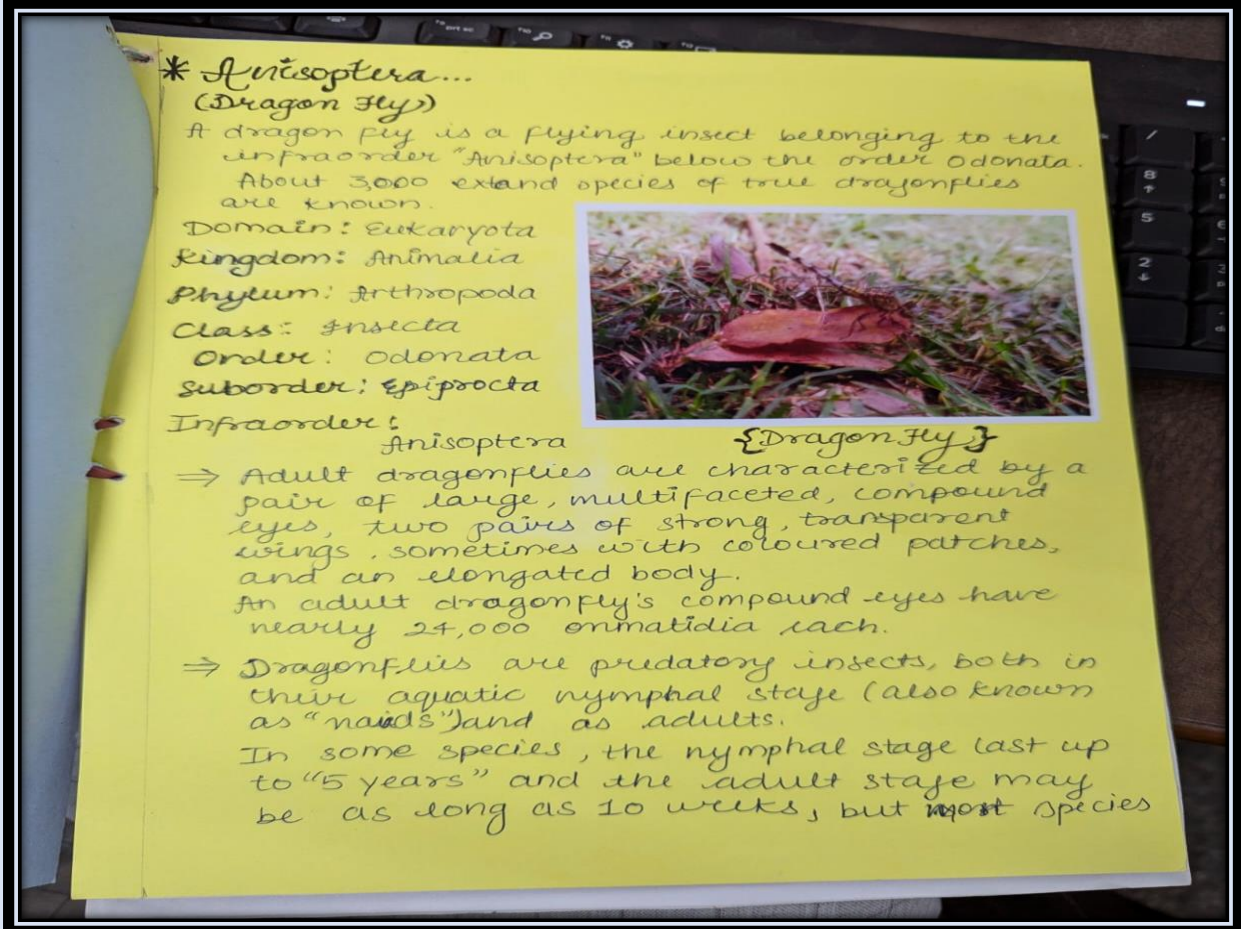 * Anisoptera...
(Dragon Fly)
A dragon fly is a flying insect belonging to the
infraorder "Anisoptera" below the order Odonata.
About 3,000 extand species of true dragonflies
are known.
Domain: Eukaryota
Kingdom: Animalia
Phylum: Arthropoda
Class: Insecta
Order: Odonata
Suborder: Epiprocta
Infraorder:
Anisoptera
{Dragon Fly}
⇒ Adult dragonflies are characterized by a
pair of large, multifaceted, compound
eyes, two pairs of strong, transparent
wings, sometimes with coloured patches,
and an elongated body.
An adult dragonfly's compound eyes have
nearly 24,000 onmatidia each.
⇒ Dragonflies are predatory insects, both in
their aquatic nymphal stage (also known
as "naids") and as adults.
In some species, the nymphal stage last up
to "5 years" and the adult stage may
be as long as 10 weeks, but most species